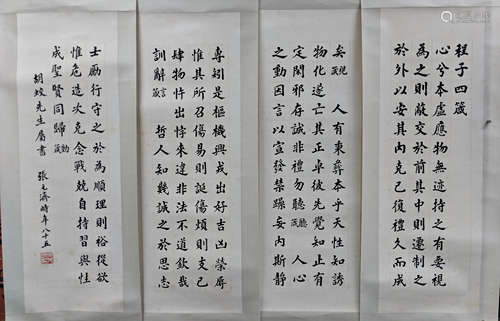 程子四箴
心兮本虛應物無迹持之有要視
為之則蔽交於前其中則遷制之
於外以安其內克己復禮久而成
矣視箴 人有秉彝本乎天性知誘
物化遂亡其正卓彼先覺知止有
定閑邪存誠非禮勿聽聽箴 人心
之動因言以宣發禁躁妄內斯靜
專矧是樞機興戎出好吉凶榮辱
惟其所召傷易則誕傷煩則支己
肆物忤出悖來違非法不道欽哉
訓辭言箴 哲人知幾誠之於思志
士勵行守之於為順理則裕從欲
惟危造次克念戰兢自持習與性
成聖賢同歸動箴
胡 先生屬書 張元濟時年八十五